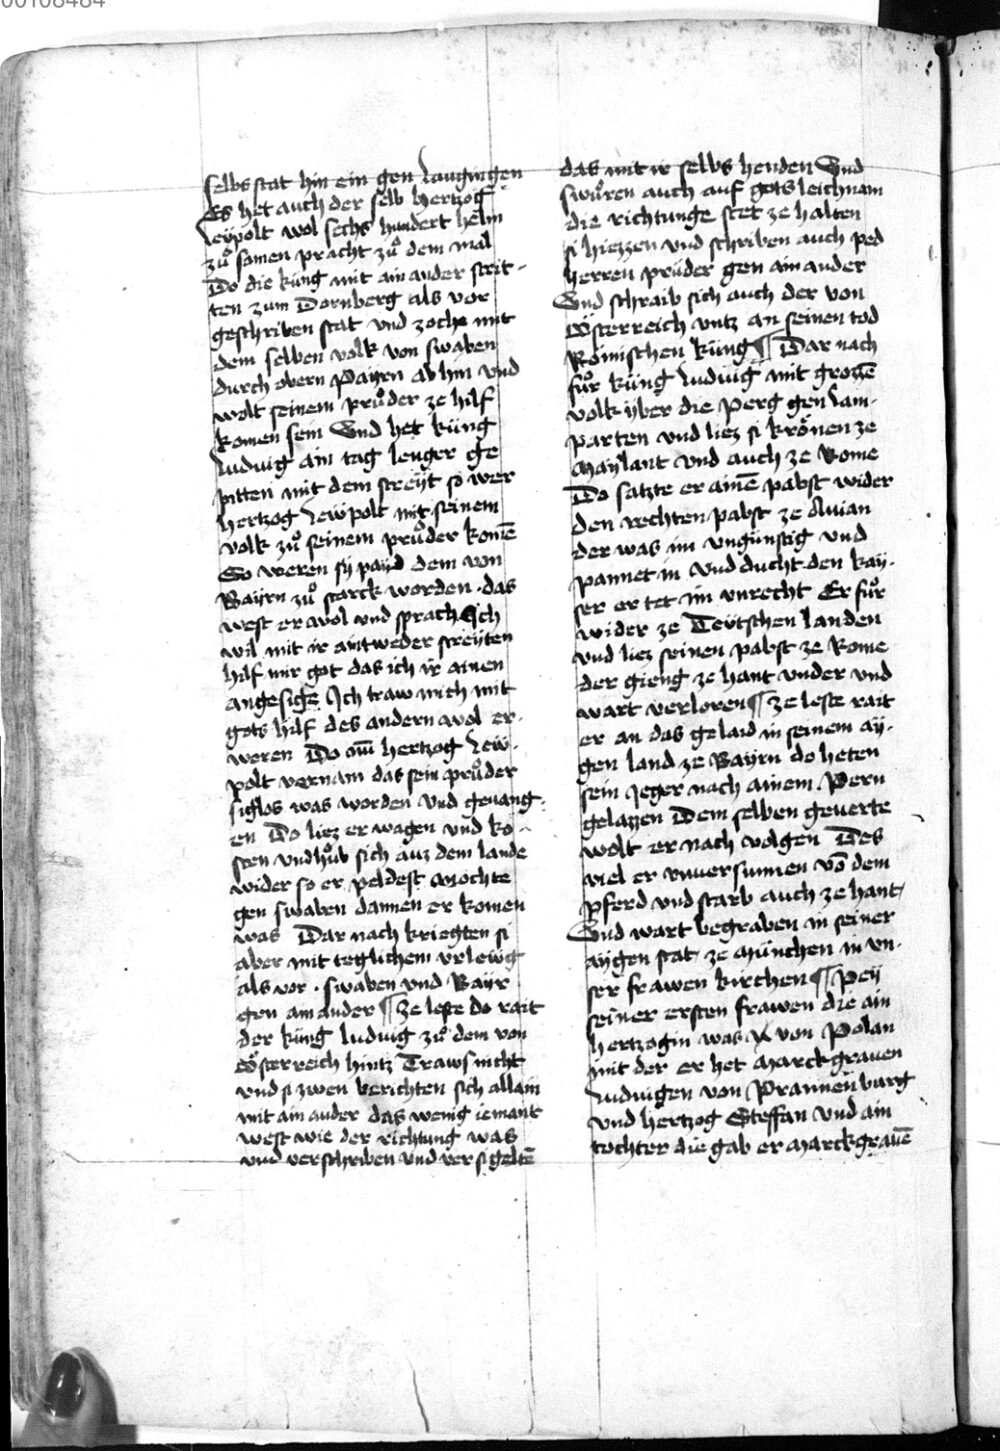 00108484
selbs stat hin ein gen Laugingen
Es het auch der selb hertzog
Leypolt wol sechs hundert helm
zů samen pracht zů dem mal
Do die küng mit ain ander strit-
ten zum Dornberg als vor
geschriben stat vnd zoch mit
dem selben volk von swaben
durch obern Payrn ab hin vnd
wolt seinem průder ze hilf
komen sein Vnd het küng
Ludwig ain tag lenger ge
pitten mit dem streyt so wer
hertzog Lewpolt mit seinem
volk zů seinem průder komē
So weren sy payd dem von
Bayrn zů starck worden · das
west er wol vnd sprach Ich
wil mit ir aintweder streyten
hilf mir got das ich ir ainen
angesige Ich traw mich mit
gots hilf des andern wol er-
weren Do nu hertzog Lew-
polt vernam das sein průder
siglos was worden vnd geuang-
en Do liez er wagen vnd ko-
sten vnd hůb sich auz dem lande
wider so er peldest mochte
gen swaben dannen er komen
was Dar nach kriegten si
aber mit teglichem vrlewg
als vor · swaben vnd Bayr
gen ain ander ¶ Ze leste do rait
der küng ludwig zů dem von
Österreich hintz Trawsnicht
vnd si zwen berichten sich allain
mit ain ander das wenig iemant
west wie der richtung was
vnd verschriben vnd versigeltē
das mit ir selbs henden Vnd
swůren auch auf gots leichnam
die richtunge stet ze halten
si hiezzen vnd schriben auch ped
herren průder gen ain ander
Vnd schraib sich auch der von
Österreich vntz an seinen tod
Römischen küng ¶ Dar nach
fůr küng Ludwig mit grozzē
volk über die perg gen Lam-
parten vnd liez si krönen ze
Maylant vnd auch ze Rome
Do satzte er ainē pabst wider
den rechten pabst ze Auian
der was im vngünstig vnd
pannet in vnd ducht den kay-
ser er tet im vnrecht Er fůr
wider ze Teütschen landen
vnd liez seinen pabst ze Rome
der gieng ze hant vnder vnd
wart verloren ¶ ze leste rait
er an das gelaid in seinem ay-
gen land ze Bayrn do heten
sein Jeger nach ainem Pern
gelazzen Dem selben geuerte
wolt er nach volgen Des
viel er vnuersunnen võ dem
pferd vnd starb auch ze hant
Vnd wart begraben in seiner
aygen stat ze München in vn-
ser frawen kirchen ¶ Pey
seiner ersten frawen die ain
hertzogin was von Polan
mit der er het Marckgrauen
Ludwigen von Prannenburg
vnd hertzog Steffan vnd ain
tochter die gab er Marckgrauē